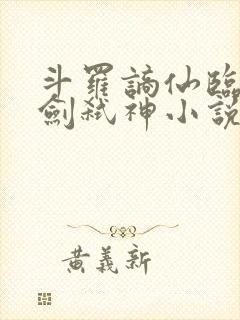 斗羅謫仙臨
劍弒神小說
黃義新